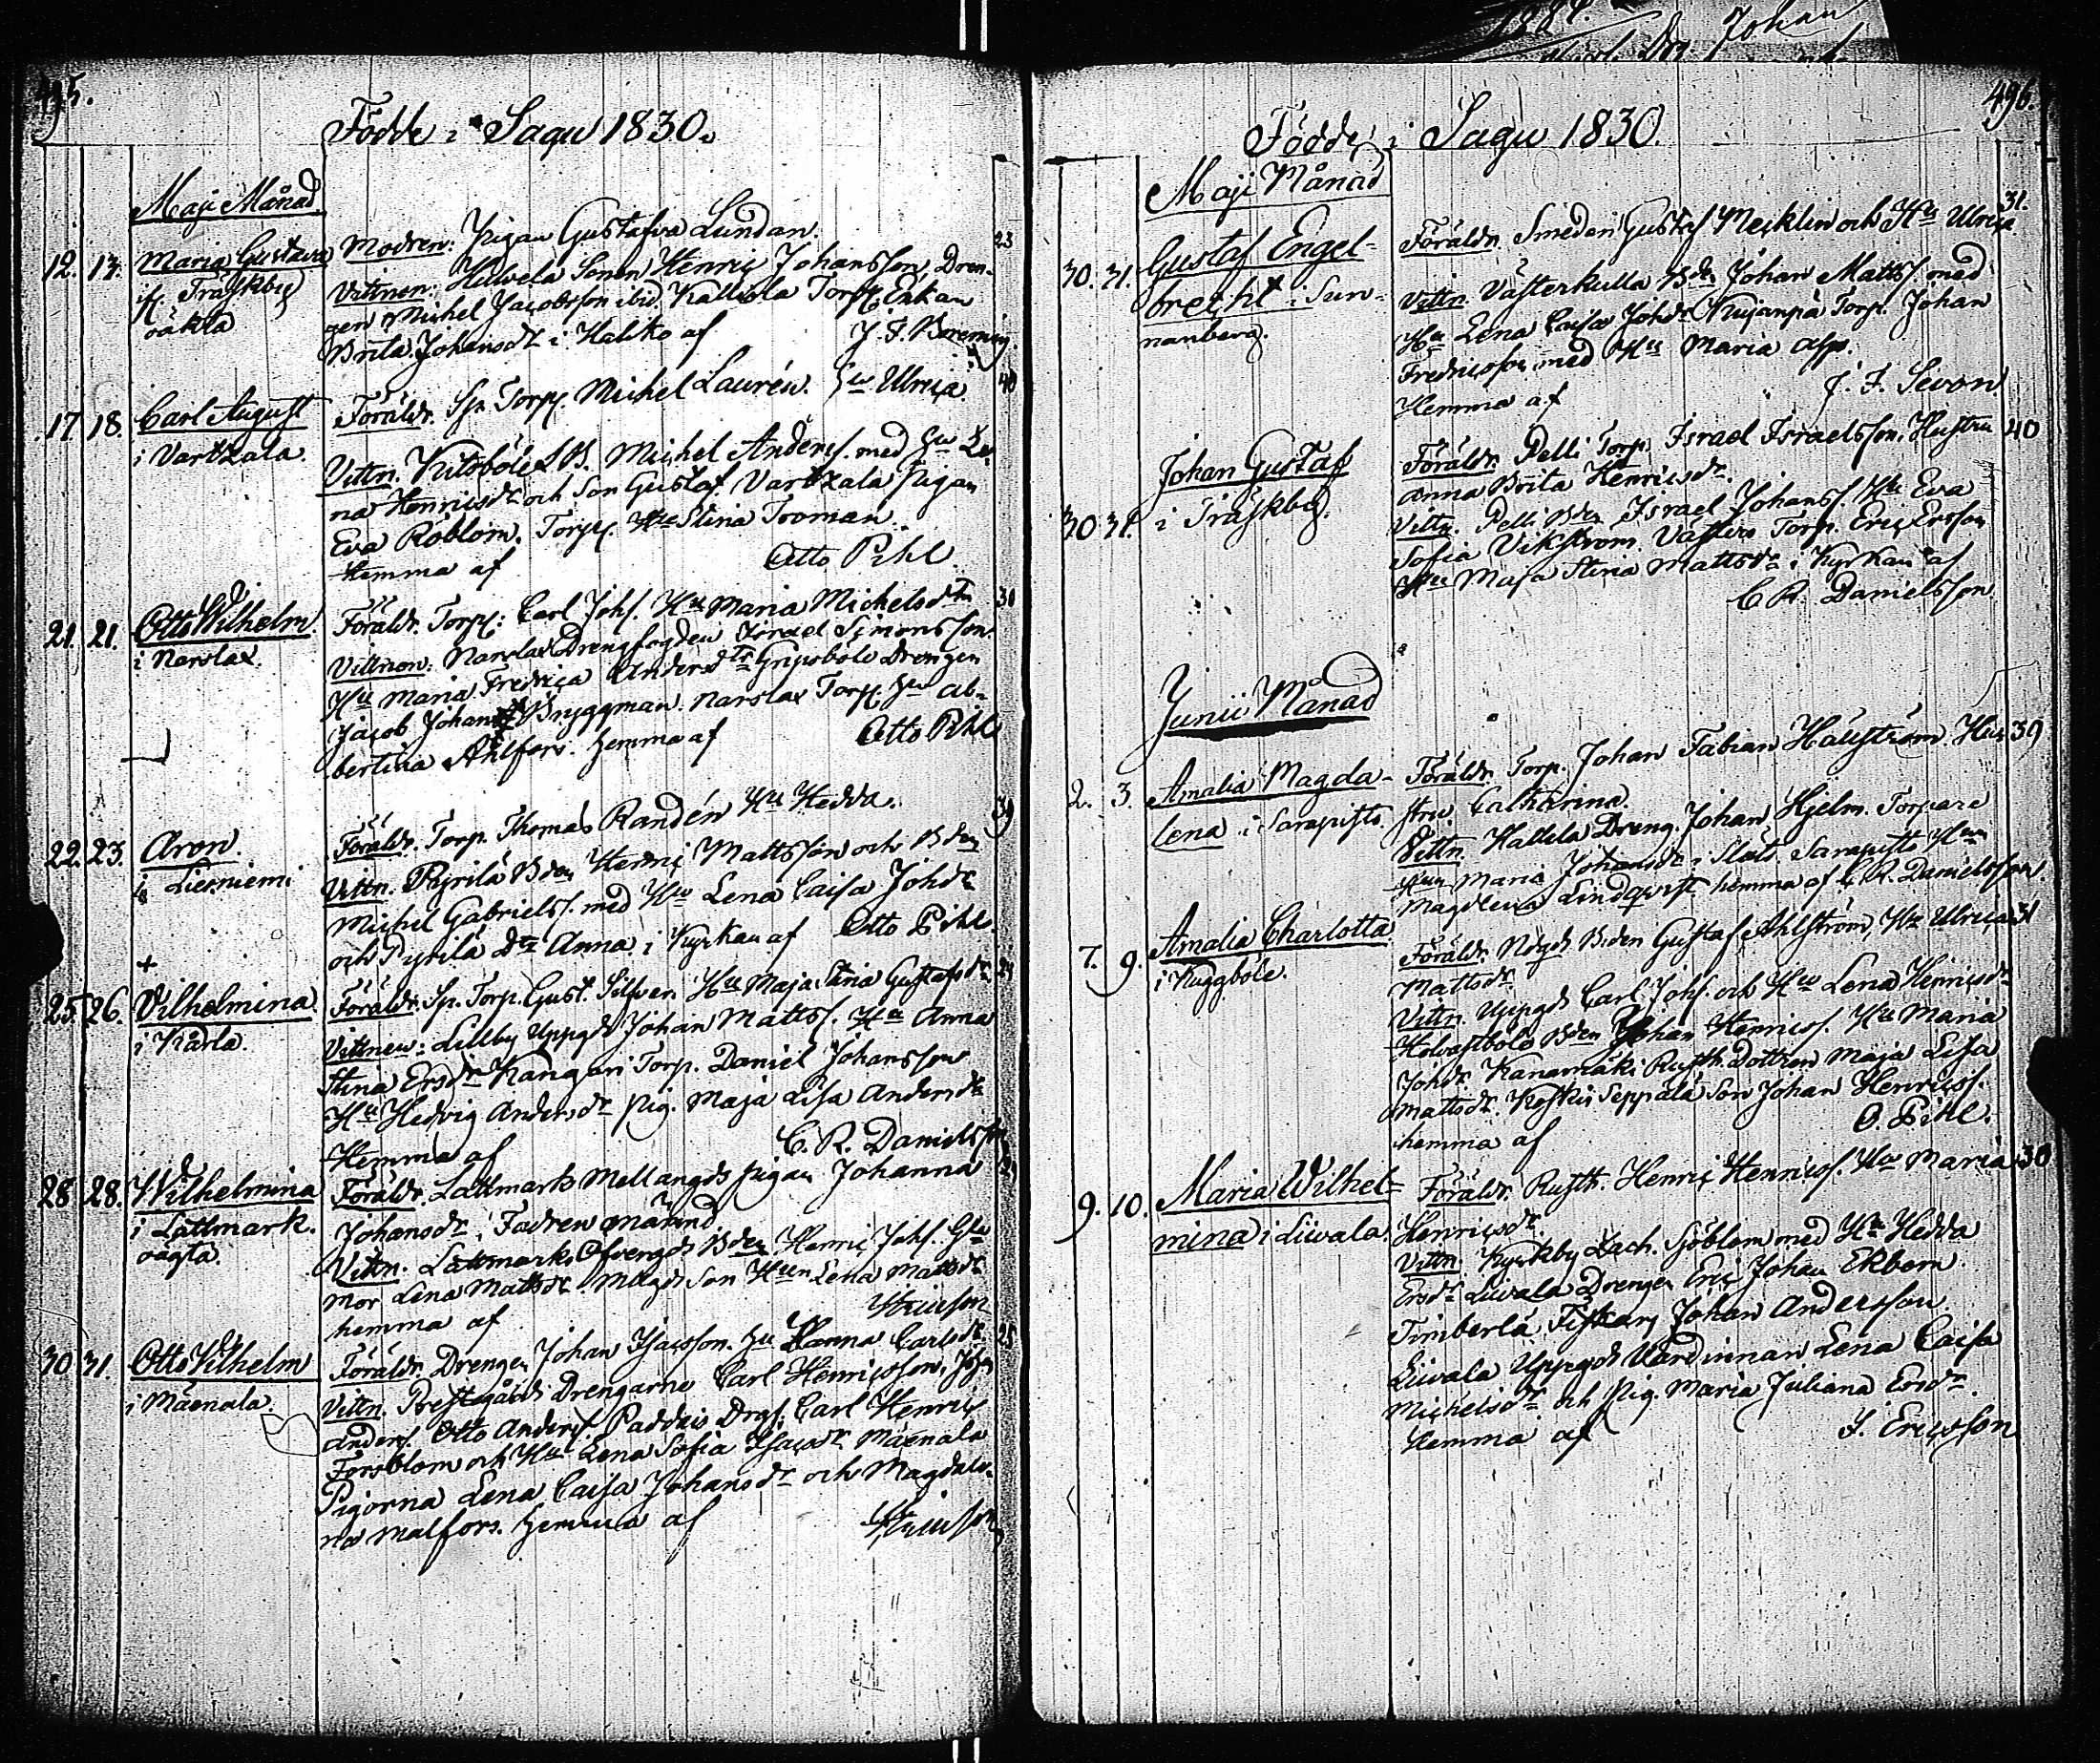 495.
Födde i Sagu 1830.
Maji Månad.
12. 13. Maria Gustava Modren: Pigan Gustafva Lundan. 23
Träskby
oäkta
Vittnen: Henric Johansson Dren-
gen Michel Jacobsson ibid. Torp. Enkan
Brita Johansdr i Haliko af J. F. Bremming
17. 18. Carl August Föräldr. Sp. Torp. Michel Laurén. Hu Ulrica. 40
i Vartzala.
Vittn. Kitsböle B. Michel Anderss. med Hu Le-
na Henricsdr och Son Gustaf. Vartzala Pigan
Eva Röblom. Torp. Hu Stina Troman.
Hemma af Otto Pihl.
21. 21. Otto Wilhelm. Föräldr. Torp. Carl Johs. Hu Maria Michelsdtr 30
i Narslax.
Vittnen: Narslax Drengfogden Israel Simonsson.
Hu Maria Fredrica Andersdtr Gripsböle Drengen
Jacob Johan Bryggman. Narslax Torp. Hu Al-
bertina Ahlfors. Hemma af Otto Pihl
22. 23. Aron. Föräldr. Torp. Thomas Randén Hu Hedda. 39
i Liesniemi
Vittn. Pyrilä Bden Henric Mattsson och Bden
Michel Gabrielss. med Hu Lena Caisa Johdr
och Pyrilä Dr Anna. i Kyrkan af Otto Pihl
+
25. 26. Vilhelmina. Föräldr. Sp. Torp. Gust. Silfver. Hu Maja Stina Gustafsdr
i Kårla.
Vittnen: Lillby Uppgds Johan Mattss. Hu Anna
Stina Ersdr Kangari Torp. Daniel Johansson
Hu Hedvig Andersdr Pig. Maja Lisa Andersdr
Hemma af C. R. Danielsson
28. 28. Wilhelmina Föräldr. Lättmarks Mellangds pigan Johanna
i Lättmark.
oägta.
Johansdr. Fadren onämnd
Vittn. Lättmarks Öfvergds Bden Henric Johs. Gla
Mor Lena Mattsdr. Mellgds Son Hren Lena Mattsdr
hemma af Ericsson
30. 31. Otto Vilhelm Föräldr. Drengen Johan Isacsson. Hu Hanna Carlsdr. 25
i Mäenala.
Vittn. Prestgårds Drengarne Carl Henricsson, Johan
Anders. Otto Anders. Paddais Drgs. Carl Henric
Forsblom och Hu Lena Sofia Isacsdr Mäenala
Pigorna Lena Caisa Johansdr och Magdale-
na Malfors. Hemma af Ericsson
496.
Födde i Sagu 1830.
Maji Månad
30. 31. Gustaf Engel-
brecht i Sun-
nanberg.
Föräldr. Smeden Gustaf Mecklin och Hu Ulrica 31.
Vittn. Västerkulla Bden Johan Mattss. med
Hu Lena Caisa Johdr Kujanpä Torp. Johan
Fredricsson med Hu Maria Alp.
Hemma af J. F. Sevon.
30 31. Johan Gustaf
i Träskby.
Föräldr. Pelli Torp. Israel Israelsson, Hustru 40
Anna Brita Henricsdr.
Vittn. Pelli Bden Israel Johanss. Hu Eva
Sofia Vikström. Västers Torp. Eric Ersson
Hu Maja Stina Mattsdr i Kyrkan af
C R. Danielsson
Junii Månad
2. 3. Amalia Magda-
lena i Sarapisto.
Föräldr. Torp. Johan Fabian Hallström. Hus- 39
stru. Catharina.
Vittn. Hallela Dreng. Johan Hjelm. Torpare
Hun Maria Johansdr i Slåts. Sarapisto Hun
Magdlena Lindqvist hemma af C. R. Danielsson.
7. 9. Amalia Charlotta
i Kuggböle.
Föräldr. Nygds Bden Gustaf Ahlström, Hu Ulrica 31
Mattsdr.
Vittn. Uppgds Carl Johs. och Hu Lena Henricsdr
Helvastböle Bden Johan Henricss. Hu Maria
Johdr. Kanamäki Rusth. Dottren Maja Lisa
Mattsdr. Keskis Seppälä Son Johan Henricss.
hemma af O. Pihl.
9. 10. Maria Wilhel-
mina i Liuvala.
Föräldr. Rusth. Henric Henricss. Hu Maria 30
Henricsdr.
Vittn. Kyrkby Zach. Sjöblom med Hu Hedda
Ersdr Liuvala Drengen Eric Johan Ekbom.
Timberlä Fiskarn Johan Andersson.
Liuvala Uppgds Värdinnan Lena Caisa
Michelsdr och Pig. Maria Juliana Ersdr.
Hemma af I. Ericsson